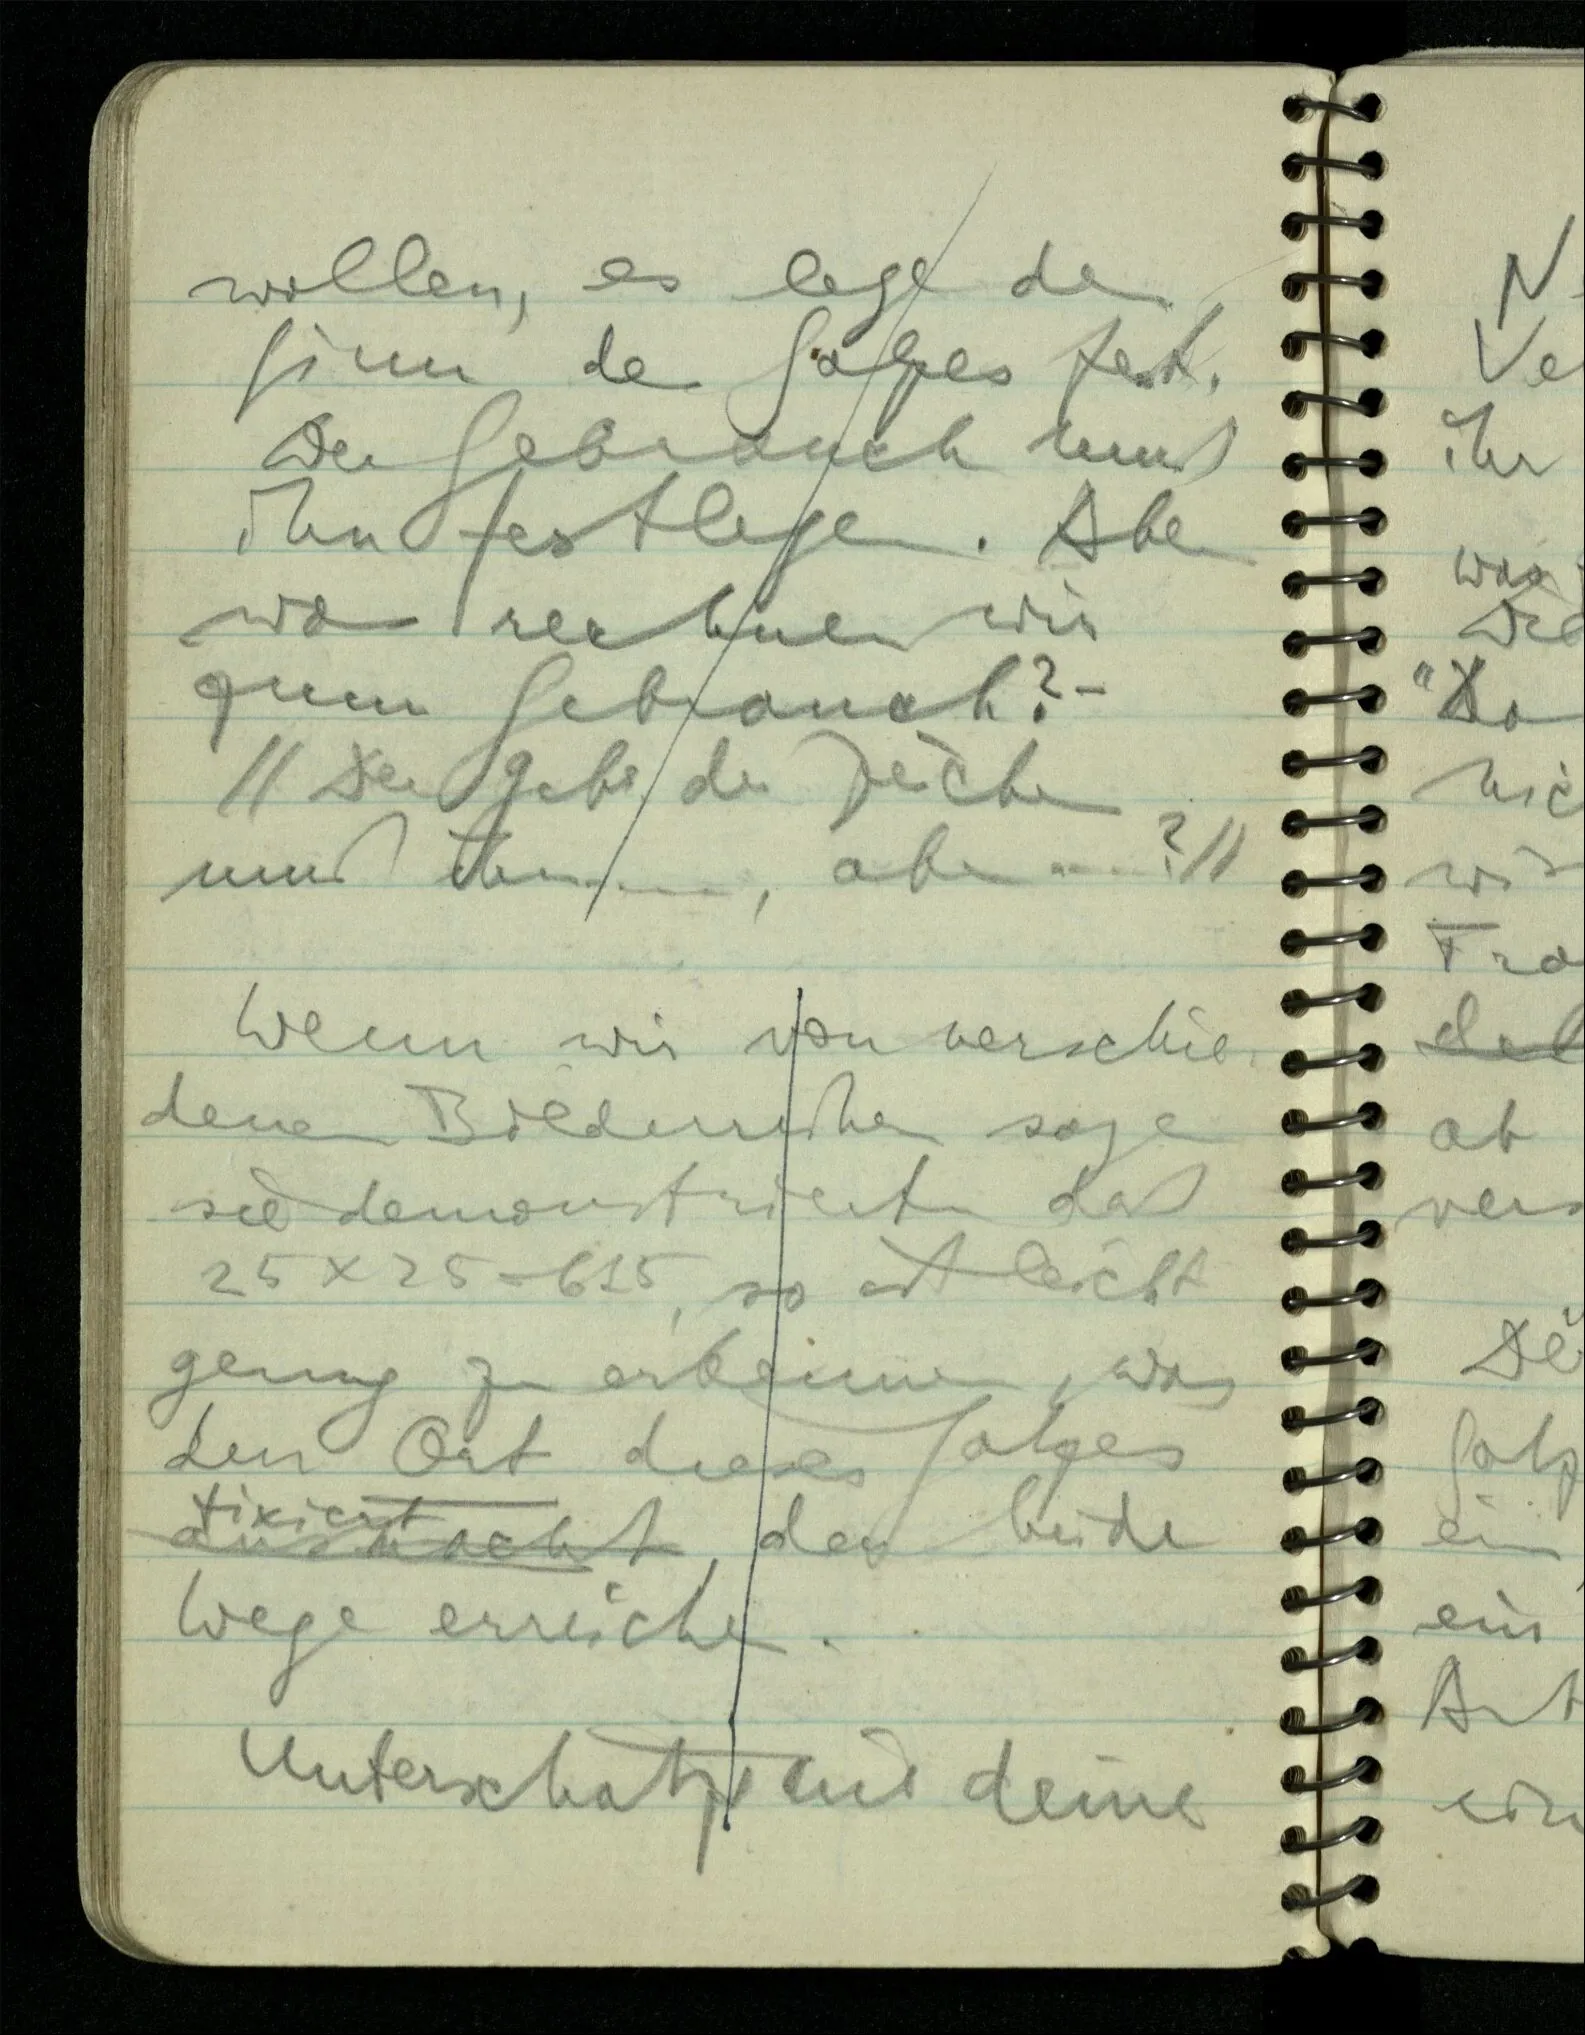 wollen, es lege den
Sinn des Satzes fest.
Der Gebrauch muß
ihn festlegen. Aber
was rechnen wir
zum Gebrauch? –
// Der Gebr. der Zeichen
muß ihn ...., aber ....?//
Wenn wir von verschie-
denen Bilderreihen sagen
sie demonstrierten daß
25 x 25 = 625, so ist leicht
genug zu erkennen, was
den Ort dieses Satzes
fixiert
ausmacht, den beide
Wege erreichen.
Unterschätzt nur deine
N
Ve
ihr
was
Die
"Da
nic
wir
Fra
ab
vers
Satz
ein
eine
Ant